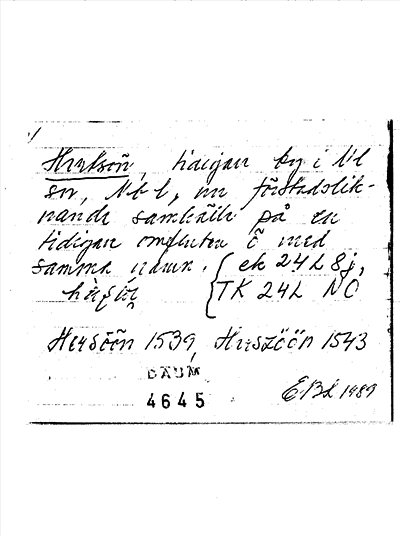 Hertsön, tidigare by i N:l
sn, Nb l, nu förstadslik-
nande samhälle på en
tidigare omfluten ö med
samma namn. { ek 24L 8j,
TK 24L NO
Hersöön 1539, Herszöön 1543
DAUM
4645
EBL 1989